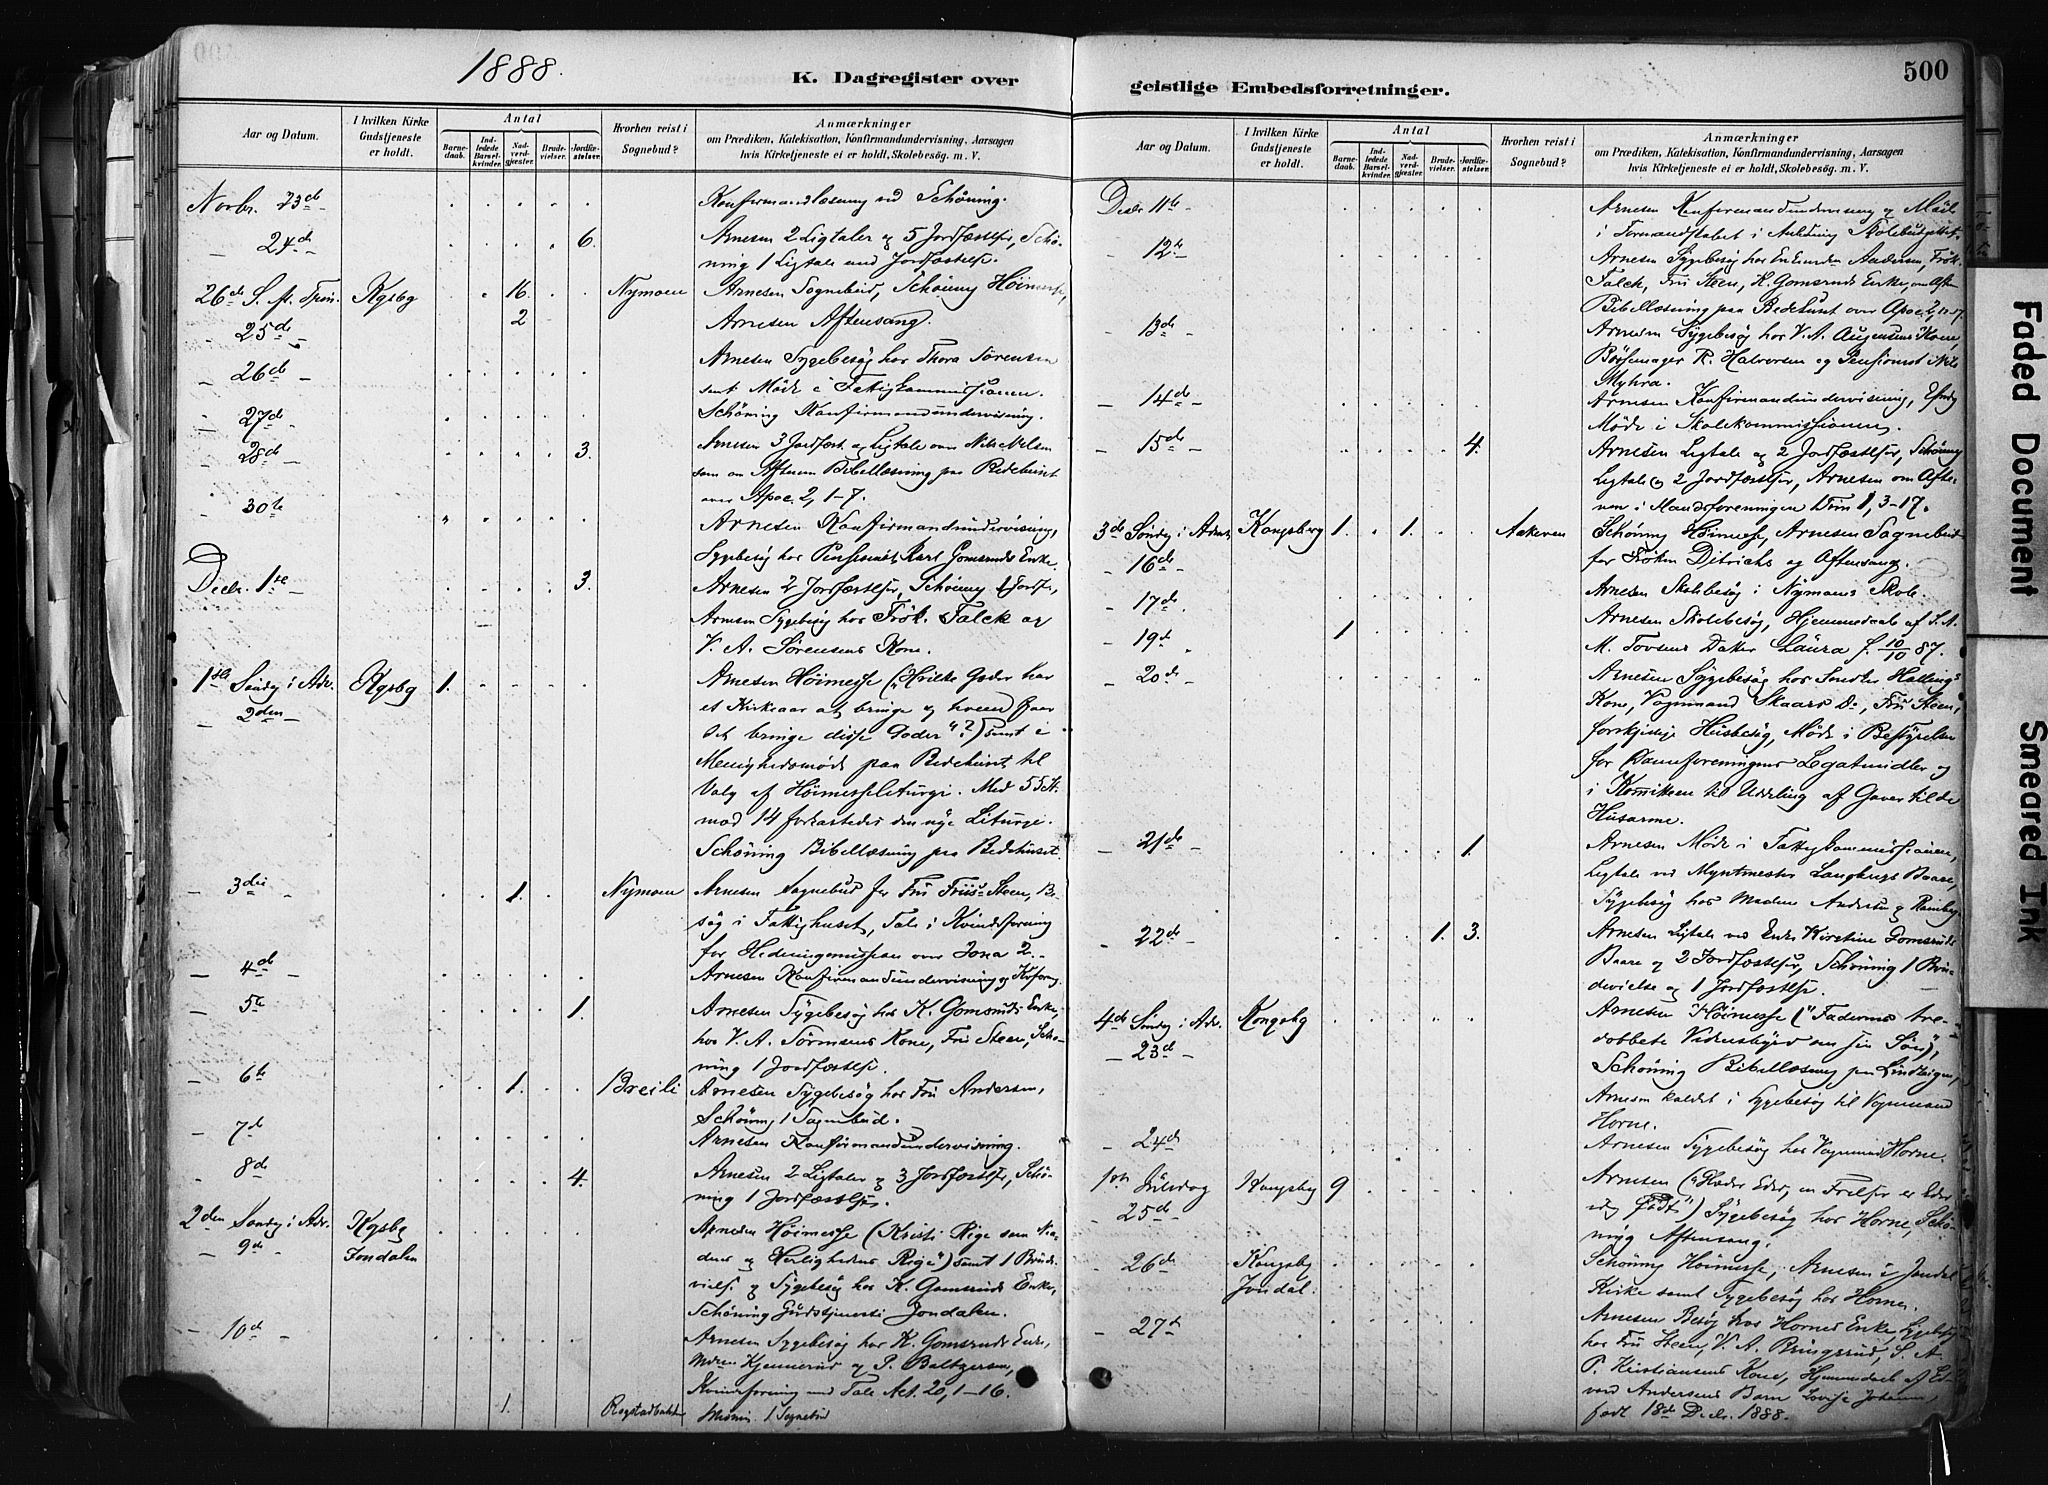 1888.
K. Dagregister over
geistlige Embedsforretninger.
500
Aar og Datum.
I hvilken Kirke Gudstjeneste er holdt.
Antal
Barnedaab.
Indledede Barselkvinder.
Nadverdgjester.
Brudevielser.
Jordfæstelser.
Hvorhen reist i Sognebud?
Anmærkninger
om Prædiken, Katekisation, Konfirmandundervisning, Aarsagen
hvis Kirketjeneste ei er holdt, Skolebesøg. m. V.
Novbr. 23de Konfirmandlæsning ved Schøning.
24de 6. Arnesen 2 Ligtaler og 5 Jordfæstelser, Schø-
ning 1 Ligtale med Jordfæstelse.
26de S. p. Trin. Kgsbg 16. Nymoen Arnesen Sognebud, Schøning Høimesse,
25de 2 Arnesen Aftensang.
26de Arnesen Sygebesøg hos Thora Sørensen
samt Møde i Fattigkommissionen.
27de Schøning Konfirmandundervisning.
28de 3. Arnesen 3 Jordfæst. og Ligtale over Nils Nilsen
som om Aftenen Bibellæsning paa Bedehuset
over Apoc. 2, 1-7.
30te Arnesen Konfirmandundervisning,
Sygebesøg hos Karl Gomsruds Enke.
Decbr. 1ste 3. Arnesen 2 Jordfæstelser, Schøning 1 Jordf.,
Arnesen Sygebesøg hos Frøk. Falck og
V. A. Sørensens Kone.
1ste Søndg i Adv. Kgsbg 1. Arnesen Høimesse ("Hvilke Goder har
2den et Kirkeaar at bringe og hvem faar
det bringe disse Goder"?) samt i
Menighedsmøde paa Bedehuset til
Valg af Høimesseliturgi. Med 55 St.
mod 14 forkastedes den nye Liturgi.
Schøning Bibellæsning paa Bedehuset.
3die 1. Nymoen Arnesen Sognebud for Fru Friis-Steen, Be-
søg i Fattighuset, Tale i Kvindeforening
for Hedningemissionen over Jona 2.
4de Arnesen Konfirmandundervisning og Kforeng.
5te 1. Arnesen Sygebesøg hos K. Gomsruds Enke,
hos V. A. Sørensens Kone, Fru Steen, Schø-
ning 1 Jordfæstelse.
6te 1. Breili Arnesen Sygebesøg hos Fru Andersen,
Schøning 1 Sognebud.
7de Arnesen Konfirmandundervisning.
8de 4. Arnesen 2 Ligtaler og 3 Jordfæstelser, Schø-
ning 1 Jordfæstelse.
2den Søndg i Adv. Kgsbg Arnesen Høimesse (Kristi Rige som Naa-
9de Jondalen dens og Herlighedens Rige") samt 1 Brude-
vielse og Sygebesøg hos K. Gomsruds Enke,
Schøning Gudstjeneste i Jondalen.
10de Arnesen Sygebesøg hos K. Gomsruds Enke,
Kjennerud og P. Baltzersen,
Kvindeforening med Tale Act. 20, 1-16.
1. 1 Sognebud
Aar og Datum.
I hvilken Kirke Gudstjeneste er holdt.
Antal
Barnedaab.
Indledede Barselkvinder.
Nadverdgjester.
Brudevielser.
Jordfæstelser.
Hvorhen reist i Sognebud?
Anmærkninger
om Prædiken, Katekisation, Konfirmandundervisning, Aarsagen
hvis Kirketjeneste ei er holdt, Skolebesøg. m. V.
Decbr 11te Arnesen Konfirmandundervisning og Møde
i Formandskabet i Anledning Skolebudgettet.
12te Arnesen Sygebesøg hos Andersen, Frøk.
Falck, Fru Steen, K. Gomsruds Enke, om Aften
Bibellæsning paa Bedehuset over Apoc. 2,
13de Arnesen Sygebesøg hos V. A. Augensens Kone,
Bøssemager R. Halvorsen og Pensionist Nils
Myhra.
14de Arnesen Konfirmandundervisning,
Møde i Skolekommissionen.
15de 4. Arnesen Ligtale og 2 Jordfæstelser, Schøning
Ligtale og 2 Jordfæstelser, Arnesen om Afte-
nen i Mandsforeningen 1, 3-17.
3de Søndg i Advt. Kongsberg 1. 1. Aakeren Schøning Høimesse, Arnesen Sognebud
16de for Frøken Ditrichs og Aftensang.
17de Arnesen Skolebesøg i Nymoens Skole.
19de 1 Arnesen Skolebesøg, Hjemmedaab af S. A.
M. Tovsens Datter Laura f. 10/10 87.
20de Arnesen Sygebesøg hos Hallings
Kone, Vognmand Skaars Do, Fru Steen,
forskjellige Husbesøg, Møde i Bestyrelsen
for Legatmidler og
i Komiteen til Uddeling af Gaver til de
Husarme.
21de 1. Arnesen Møde i Fattigkommissionen,
Ligtale ved Myntmester Langbergs Baare,
Sygebesøg hos Madm Andersen og
22de 1. 3. Arnesen Ligtale ved Enke Kirstine Gomsruds
Baare og 2 Jordfæstelser, Schøning 1 Bru-
devielse og 1 Jordfæstelse.
4de Søndg i Adv. Kongsbg Arnesen Høimesse ("Faderens tre-
23de dobbete Vidnesbyrd om sin Søn"),
Schøning Bibellæsning paa
Arnesen kaldet i Sygebesøg til Vognmand
Horne.
24de Arnesen Sygebesøg hos Vognmand Horne.
1ste Juledag Kongsbg 9 Arnesen ("Glæder Eder, en Frelser er Eder
25de idag født") Sygebesøg hos Horne, Schø-
ning Aftensang.
26de Kongsbg Schøning Høimesse, Arnesen i Jondals
Jondal. Kirke samt Sygebesøg hos Horne.
27de Arnesen Besøg hos Hornes Enke, Sygebesøg
hos Fru Steen, V. A. Bringsrud, S. A.
P. Kristiansens Kone, Hjemmedaab af Ed-
vard Andersens Barn Lovise Johanne,
født 18de Decbr. 1888.
Faded Document
Smeared Ink